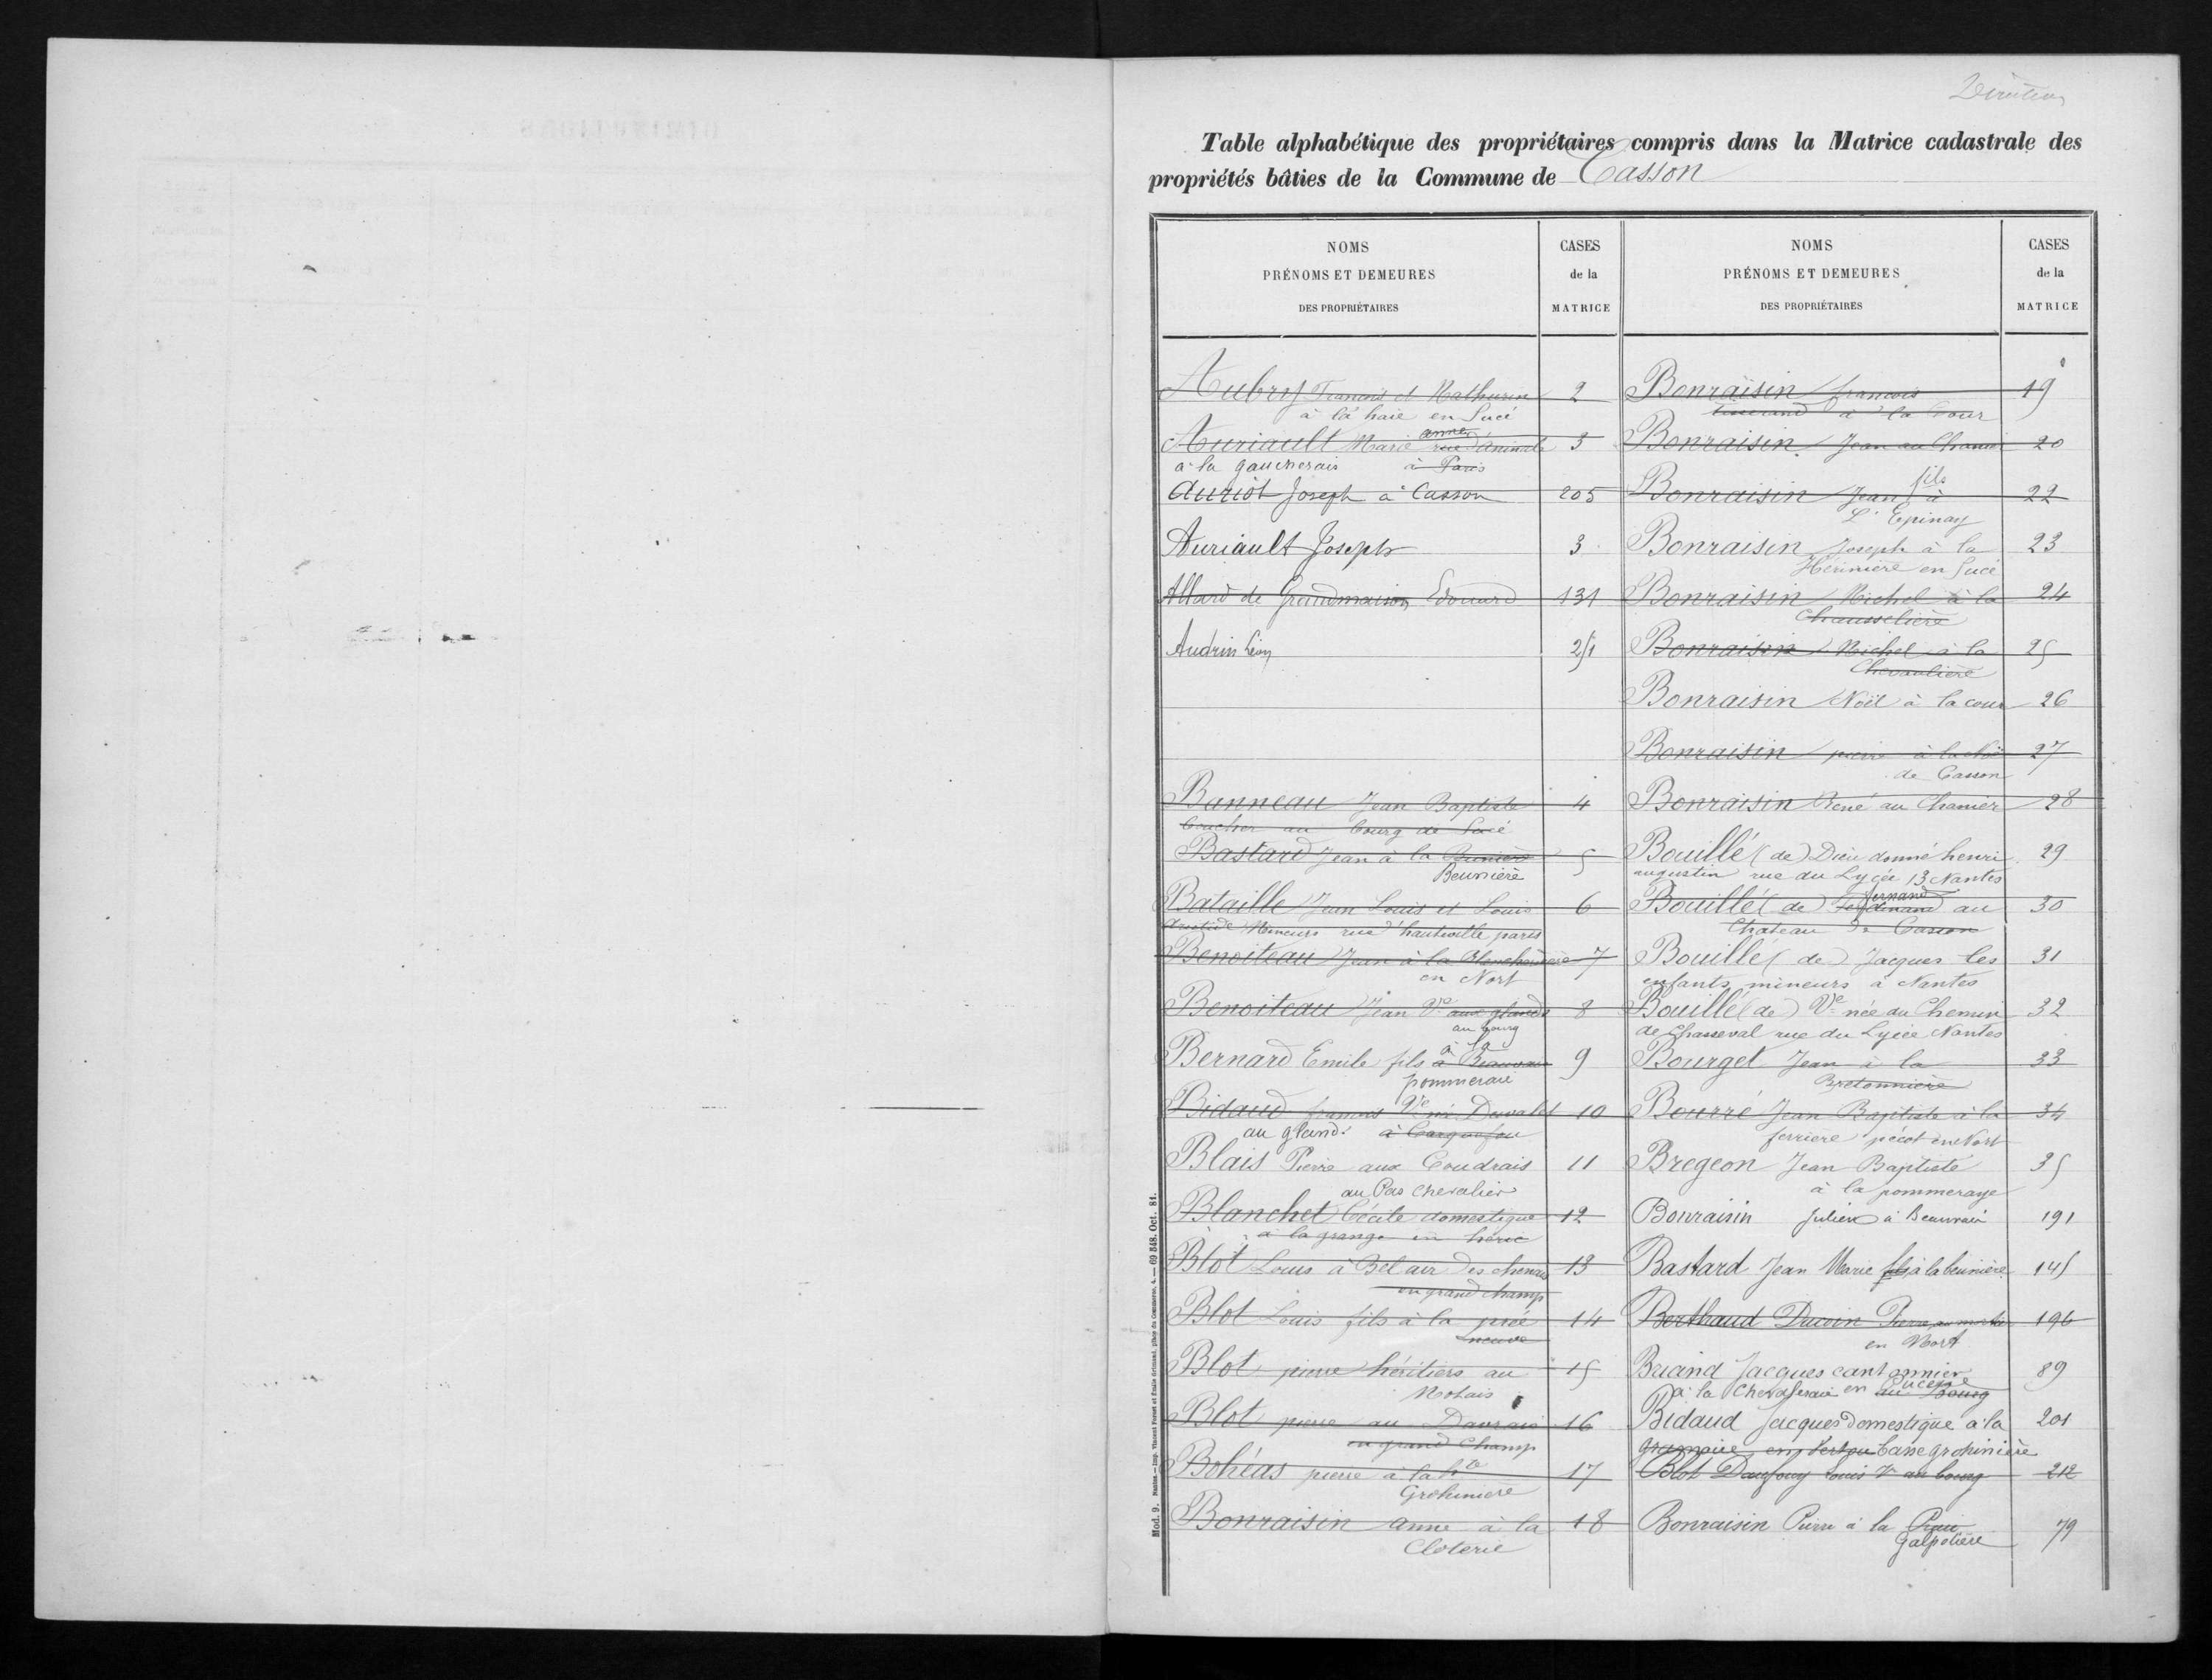 Table alphabétique des propriétaires compris dans la Matrice cadastrale des
propriétés bâties de la Commune de Casson
NOMS
PRÉNOMS ET DEMEURES
DES PROPRIÉTAIRES
CASES
de la
MATRICE
Aubry Francois et Mathurin 2
à la haie en Sucé
Auriault Marie anne rue 3
à la gaucherais à Paris
Auriot Joseph à Casson 205
Auriault Joseph 3
Allard de Grandmaison Edouard 131
Audrin Léon 251
Banneau Jean Baptiste 4
boucher au bourg de Sucé
Bastard Jean à la 5
Beunière
Bataille Jean Louis et Louis 6
Aristide Mineurs rue d'hauteville paris
Benoiteau Jean à la 7
en Nort
Benoiteau Jean Ve aux glands 8
au bourg
à la
Bernard Emile fils à Beauvais 9
pommeraie
Bidaud francois Ve née Duvalet 10
au gland à Carquefou
Blais Pierre aux Coudrais 11
au Pas chevalier
Blanchet Cécile domestique 12
à la grange en héric
Blot Louis à Bel air des chenais 13
en grand champ
Blot Louis fils à la pree 14
neuve
Blot pierre héritiers au 15
Motais
Blot pierre au Davrais 16
en grand Champ
Bohéas pierre à la hte 17
Grohinière
Bonraisin anne à la 18
Cloterie
NOMS
PRÉNOMS ET DEMEURES
DES PROPRIÉTAIRES
CASES
de la
MATRICE
Bonraisin francois 19
tisserand à la Cour
Bonraisin Jean au Chanier 20
Bonraisin Jean fils à 22
L'Epinay
Bonraisin Joseph à la 23
Hérinière en Sucé
Bonraisin Michel à la 24
Chausselière
Bonraisin Michel à la 25
Chevaulière
Bonraisin Noël à la cour 26
Bonraisin pierre à la Noë 27
de Casson
Bonraisin René au Chanier 28
Bouillé (de) Dieu donné henri 29
augustin rue du Lycée 13 Nantes
Bouillé (de) Ferdinand fernand au 30
Chateau de Casson
Bouillé (de) Jacques les 31
enfants mineurs à Nantes
Bouillé (de) Ve née du Chemin 32
de Chasseval rue du Lycée Nantes
Bourget Jean à la 33
Bretonnière
Bourré Jean Baptiste à la 34
ferrière pécot en Nort
Bregeon Jean Baptiste 35
à la pommeraye
Bonraisin Julien à Beauvais 191
Bastard Jean Marie fils à la beunière 145
Berthaud Ducoin Pierre au mortier 196
en Nort
Briand Jacques cantonnier 89
à la Chevasserais en Sucé au bourg
Bidaud Jacques domestique à la 201
basse grohinière
Blot Daufouy Louis Ve au bourg 212
Bonraisin Pierre à la Prée 79
Galpotière
Mod. 9. Nantes. — Imp. Vincent Forest et Émile Grimaud, place du Commerce, 4. — 69 848. Oct. 81.